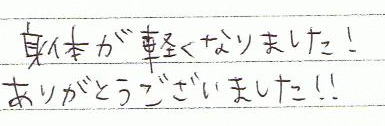 身体が軽くなりました!
ありがとうございました!!